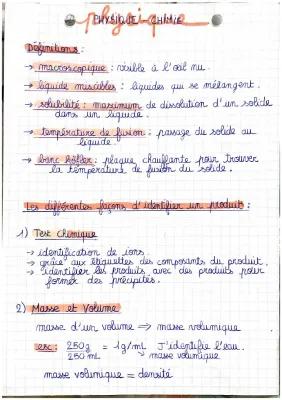 physique
PHYSIQUE CHIMIE
Définitions :
→ macroscopique : visible à l'œil nu.
→ liquide miscibles : liquides qui se mélangent.
→ solubilité : maximum de dissolution d'un solide
dans un liquide.
→ température de fusion : passage du solide au
liquide.
→ banc köfler : plaque chauffante pour trouver
la température de fusion du solide.
Les différentes façons d'identifier un produit :
1) Test chimique
→ identification de ions.
→ grâce aux étiquettes des composants du produit.
→ identifier les produits avec des produits pour
former des précipités.
2) Masse et Volume
masse d'un volume ⇒ masse volumique
ex : 250g / 250 mL = 1g/mL J'identifie l'eau.
↘ masse volumique
masse volumique = densité